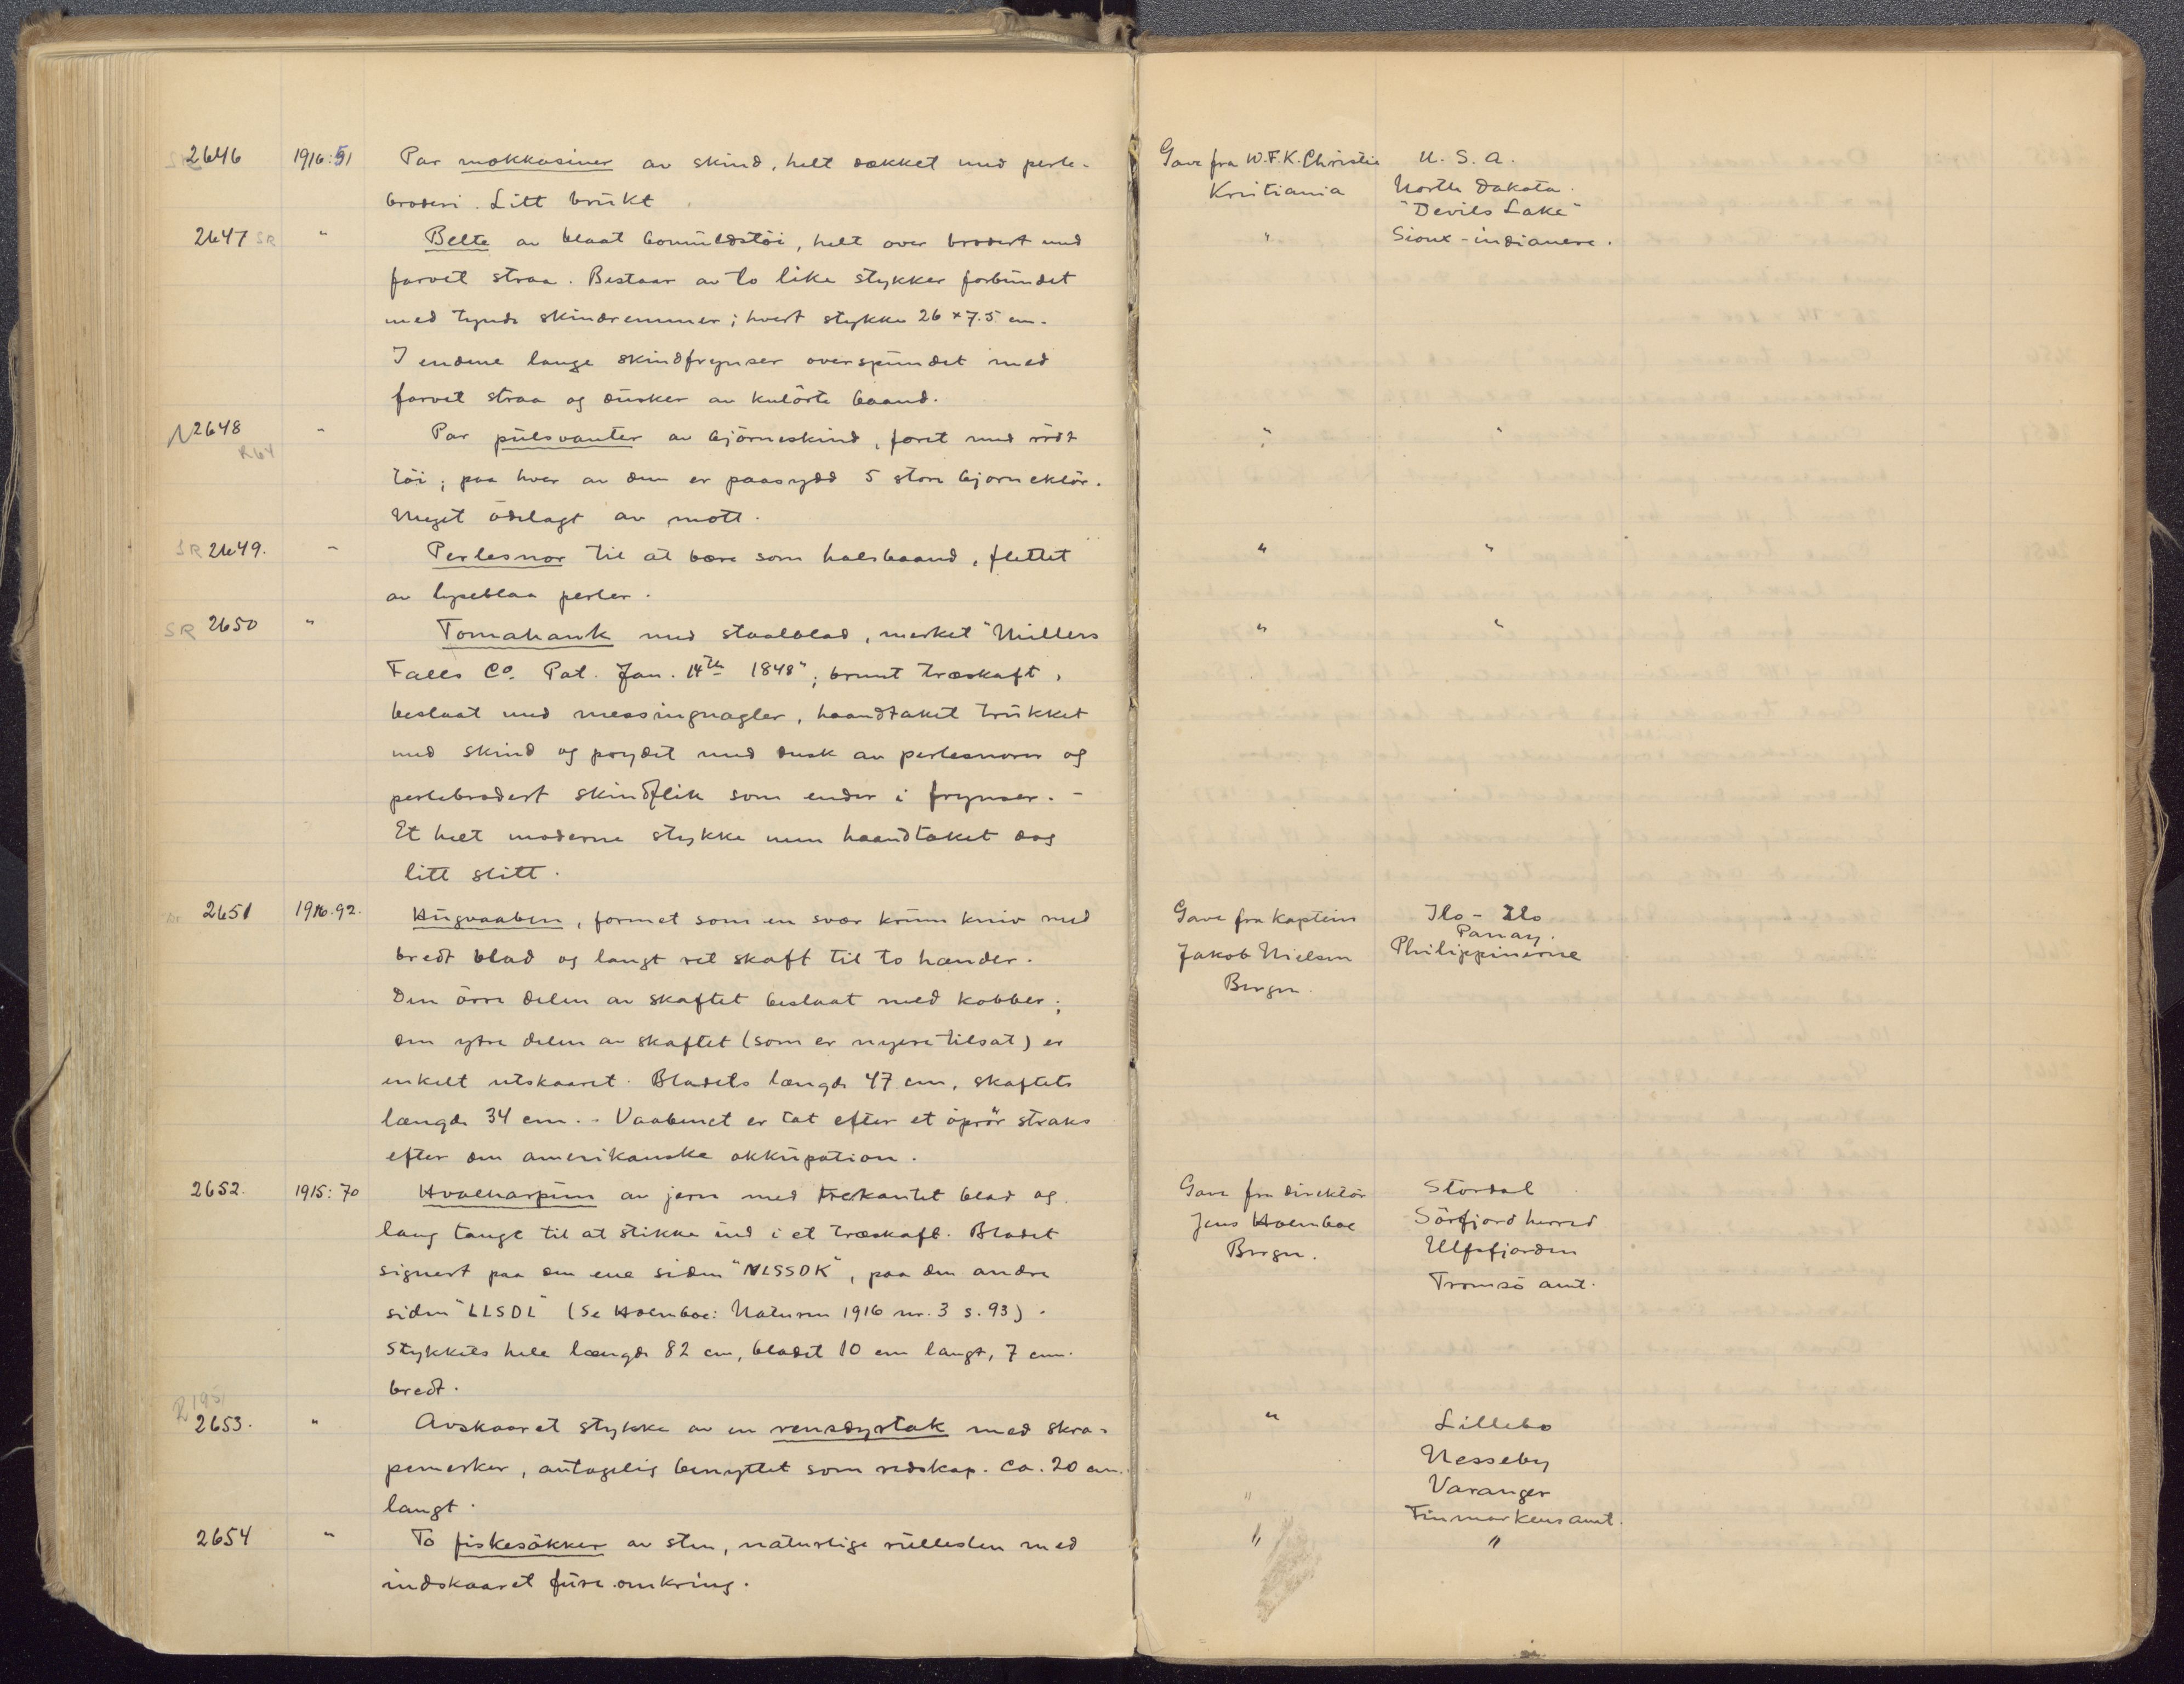 2646 1916:51 Par mokkasiner av skind, helt dækket med perle-
broderi. Litt brukt.
2647 SR " Belte av blaat bomuldstöi, helt over brodert med
farvet straa. Bestaar av to like stykker forbundet
med tynde skindremmer; hvert stykke 26 x 7.5 cm.
I endene lange skindfrynser overspundet med
farvet straa og dusker av kulörte baand.
2648 " Par pulsvanter av björneskind, foret med rödt
R64
töi; paa hver av dem er paasydd 5 store bjorneklör.
Meget ödelagt av mott.
SR 2649. " Perlesnor til at bære som halsbaand, flettet
av lyseblaa perler.
SR 2650 " Tomahawk med staalblad, merket "Millers
Falls Co. Pat. Jan. 14th 1848"; brunt træskaft,
beslaat med messingnagler, haandtaket trukket
med skind og prydet med dusk av perlesnorer og
perlebrodert skindflik som ender i frynser. -
Et helt moderne stykke men haandtaket dog
litt slitt.
2651 1916.92. Hugvaaben, formet som en svær krum kniv med
bredt blad og langt ret skaft til to hænder.
Den övre delen av skaftet beslaat med kobber;
den ydre delen av skaftet (som er nyere tilsat) er
enkelt utskaaret. Bladets længde 47 cm, skaftets
længde 34 cm. - Vaabenet er tat efter et oprör straks
efter den amerikanske okkupation.
2652. 1915:70 Hvalharpun av jern med trekantet blad og
lang tange til at stikke ind i et træskaft. Bladet
signert paa den ene siden "NLSSDK", paa den andre
siden "LLSDL" (Se Holmboe: Naturen 1916 nr. 3 s. 93).
Stykkets hele længde 82 cm, bladet 10 cm langt, 7 cm.
bredt.
R 195
2653. " Avskaaret stykke av en rensdyrtak med skra-
pemerker, antagelig benyttet som redskap. Ca. 20 cm.
langt.
2654 " To fiskesökker av sten, naturlige rullesten med
indskaaret fure omkring.
Gave fra W.F.K. Christie
Kristiania
U. S. A.
North Dakota.
"Devils Lake"
" Sioux-indianere.
" "
" "
" "
Gave fra Kaptein
Jakob Nielsen
Bergen.
Ilo - Ilo
Panay.
Philippinerne
Gave fra direktör
Jens Holmboe
Bergen.
Stordal
Sörfjord herred
Ulfsfjorden
Tromsö amt.
" Lillebo
Nesseby
" Varanger
Finmarkens amt.
" "